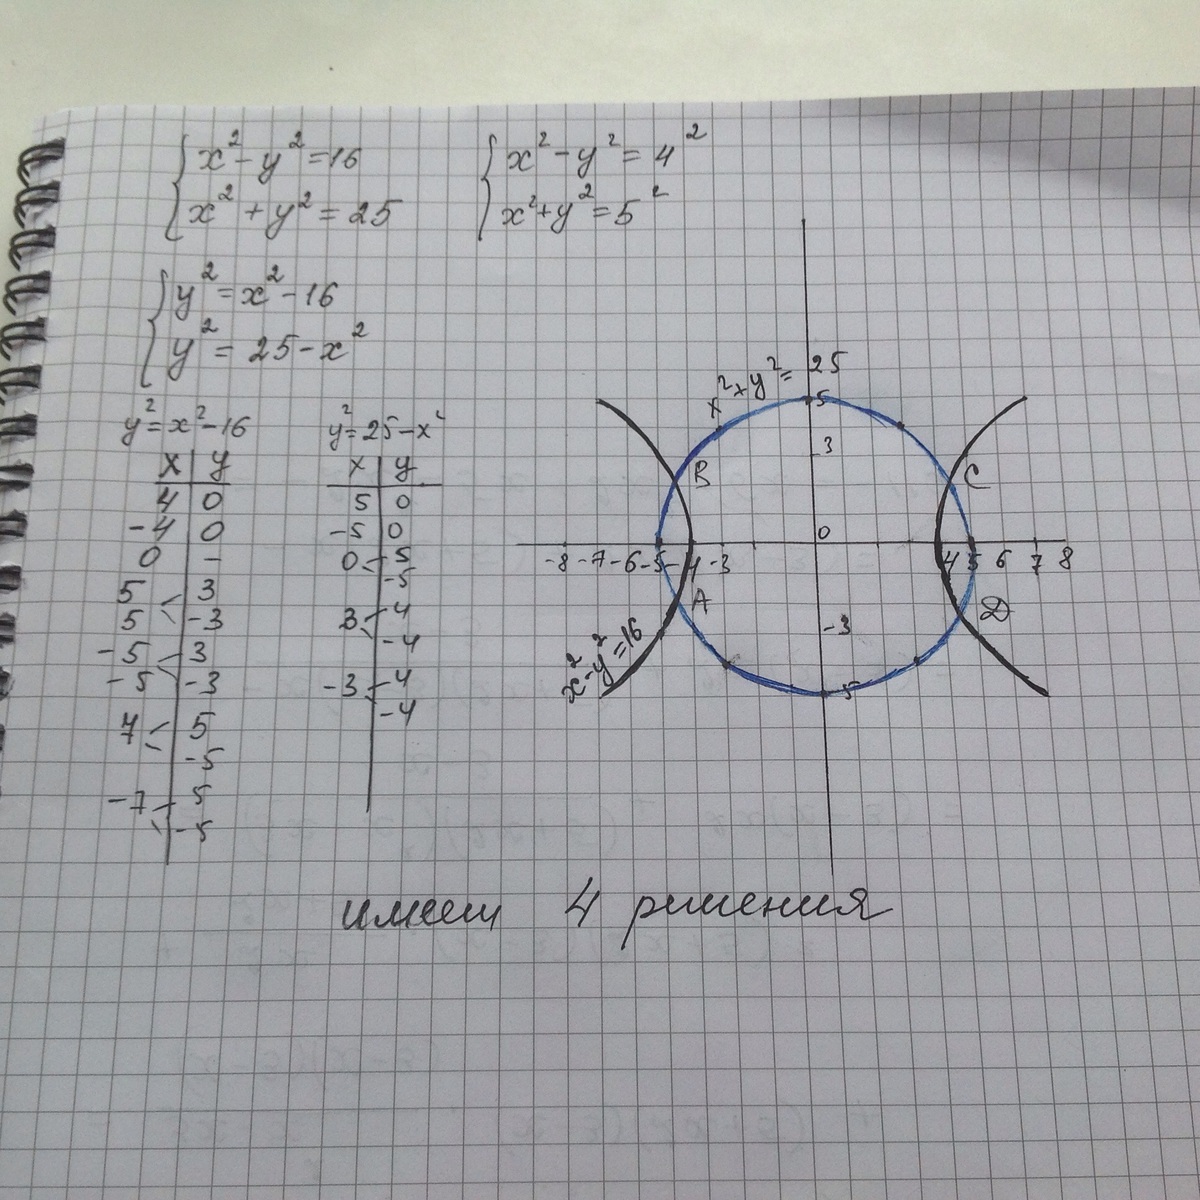 x² - y² = 16
x² + y² = 25
x² - y² = 4²
x² + y² = 5²
y² = x² - 16
y² = 25 - x²
y² = x² - 16
x y
4 0
-4 0
0 -
5 3
5 -3
-5 3
-5 -3
7 5
-5
-7 5
-5
y² = 25 - x²
x y
5 0
-5 0
0 5
-5
3 4
-4
-3 4
-4
x² + y² = 25
5
3
B C
0
-8 -7 -6 -5 -4 -3 4 5 6 7 8
A D
-3
x² - y² = 16
-5
имеет 4 решения